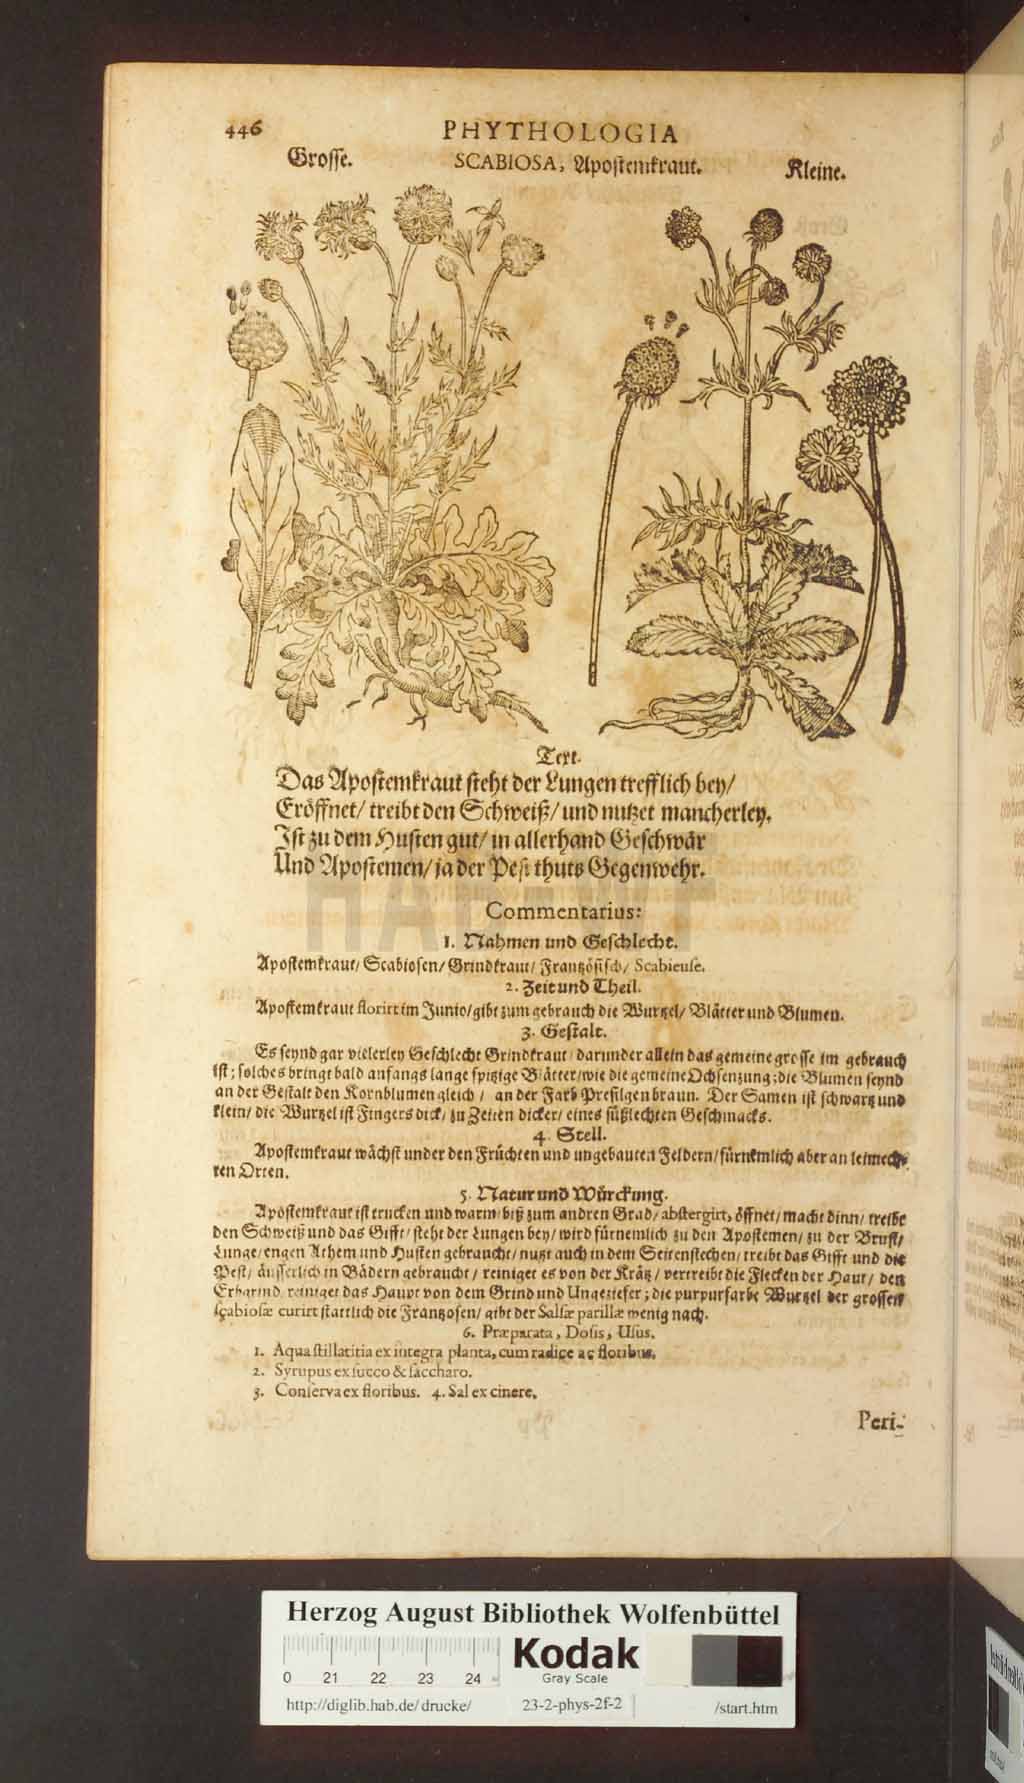 446
PHYTHOLOGIA
Grosse.
SCABIOSA, Apostemkraut.
Kleine.
Text.
Das Apostemkraut steht der Lungen trefflich bey/
Eröffnet/ treibt den Schweiß/ und nutzet mancherley.
Ist zu dem Husten gut/ in allerhand Geschwär
Und Apostemen/ ja der Pest thuts Gegenwehr.
HAB
Commentarius:
1. Nahmen und Geschlecht.
Apostemkraut/ Scabiosen/ Grindkraut/ Frantzösisch/ Scabieuse.
2. Zeit und Theil.
Apostemkraut florirt im Junio/ gibt zum gebrauch die Wurtzel/ Blätter und Blumen.
3. Gestalt.
Es seynd gar vielerley Geschlecht Grindkraut/ darunder allein das gemeine grosse im gebrauch
ist; solches bringt bald anfangs lange spitzige Blätter/ wie die gemeine Ochsenzung; die Blumen seynd
an der Gestalt den Kornblumen gleich/ an der Farb Presilgen braun. Der Samen ist schwartz und
klein/ die Wurtzel ist Fingers dick/ zu Zeiten dicker/ eines süßlechten Geschmacks.
4. Stell.
Apostemkraut wächst under den Früchten und ungebauten Feldern/ fürnemlich aber an leimech-
ten Orten.
5. Natur und Würckung.
Apostemkraut ist trucken und warm/ biß zum andren Grad/ abstergirt, öffnet/ macht dinn/ treibt
den Schweiß und das Gifft/ steht der Lungen bey/ wird fürnemlich zu den Apostemen/ zu der Brust/
Lunge/ engen Athem und Husten gebraucht/ nutzt auch in dem Seitenstechen/ treibt das Gifft und die
Pest/ äusserlich in Bädern gebraucht/ reiniget es von der Krätz/ vertreibt die Flecken der Haut/ den
Erbgrind, reiniget das Haupt von dem Grind und Ungeziefer; die purpurfarbe Wurtzel der grossen
scabiosæ curirt stattlich die Frantzosen/ gibt der Salsæ parillæ wenig nach.
6. Præparata, Dosis, Usus.
1. Aqua stillatitia ex integra planta, cum radice ac floribus.
2. Syrupus ex succo & saccharo.
3. Conserva ex floribus. 4. Sal ex cinere.
Peri-
Herzog August Bibliothek Wolfenbüttel
Kodak
Gray Scale
0 21 22 23 24
http://diglib.hab.de/drucke/
23-2-phys-2f-2
/start.htm